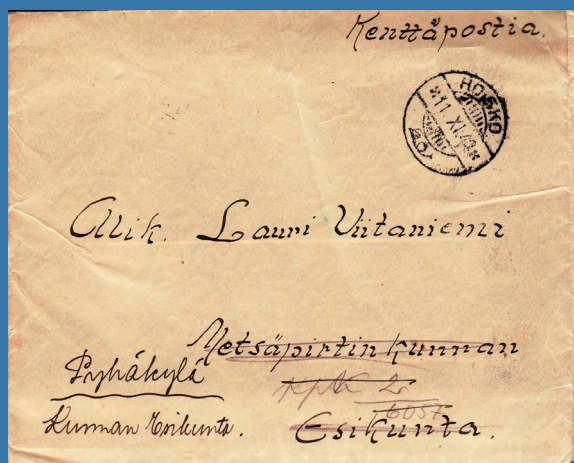 Kenttäpostia.
HOISKO
*11.XI.42*
Alik. Lauri Viitaniemi
Metsäpirtin kunnan
Pyhäkylä
KpK 2
6057
Kunnan Esikunta.
Esikunta.